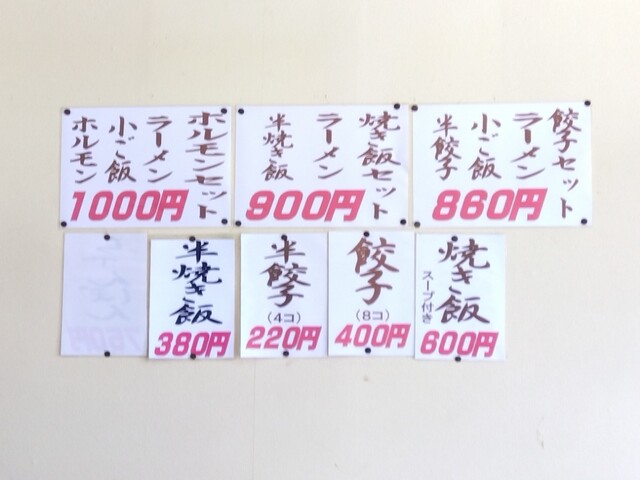 餃子セット
ラーメン
小ご飯
半餃子
860円
焼き飯セット
ラーメン
半焼き飯
900円
ホルモンセット
ラーメン
小ご飯
ホルモン
1000円
焼き飯
スープ付き
600円
餃子
(8コ)
400円
半餃子
(4コ)
220円
半焼き飯
380円